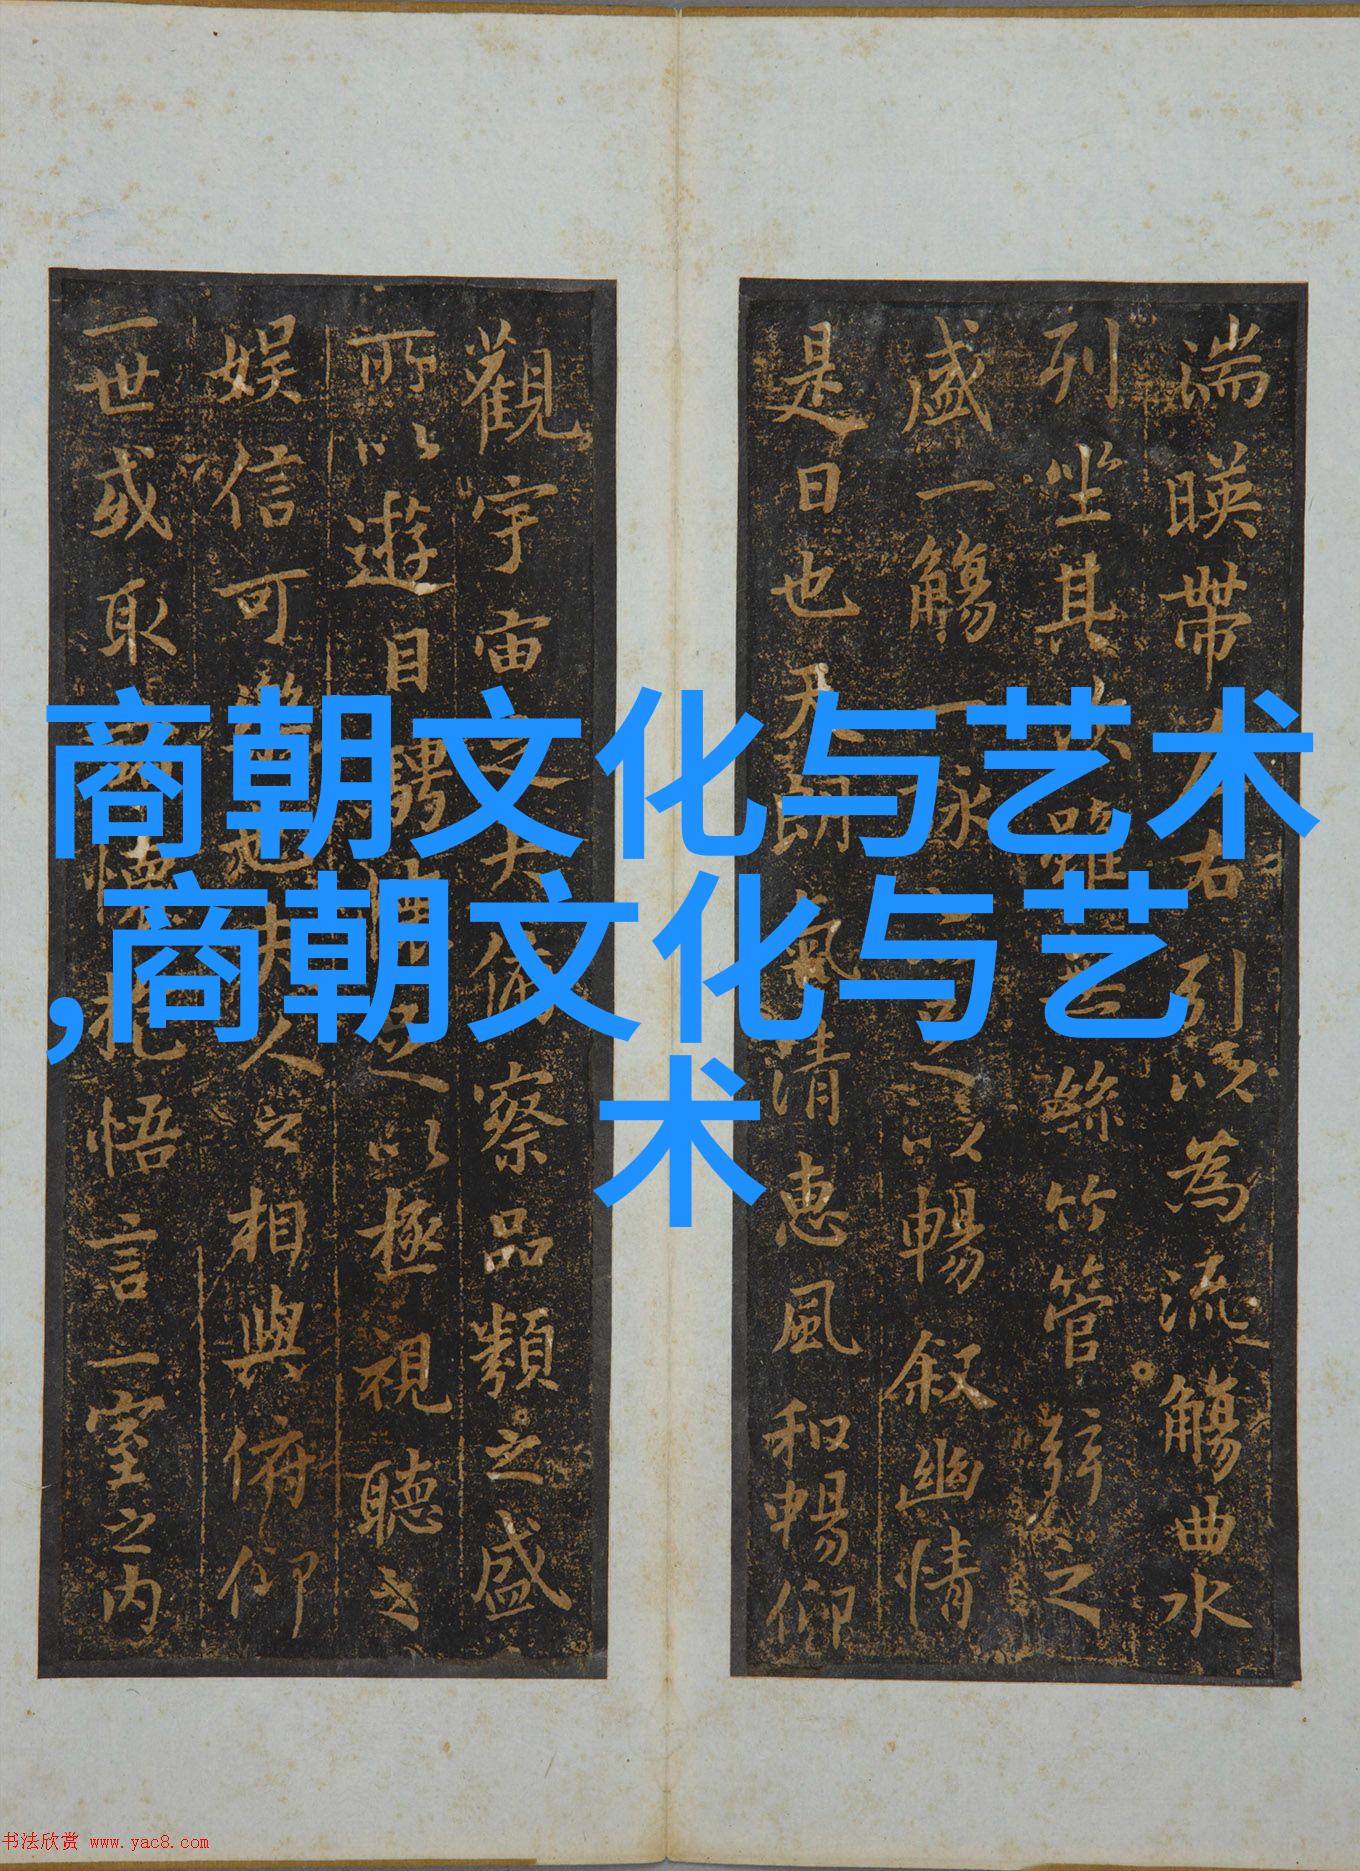 商朝文化与艺术
,商朝文化与艺
术
湍暎帶左右引以為流觴曲水
列坐其次雖無絲竹管弦之
盛一觴一詠亦足以暢叙幽情
是日也天朗氣清惠風和暢仰
觀宇宙之大俯察品類之盛
所以遊目騁懷足以極視聽之
娛信可樂也夫人之相與俯仰
一世或取諸懷抱悟言一室之内
书法欣赏 www.yac8.com